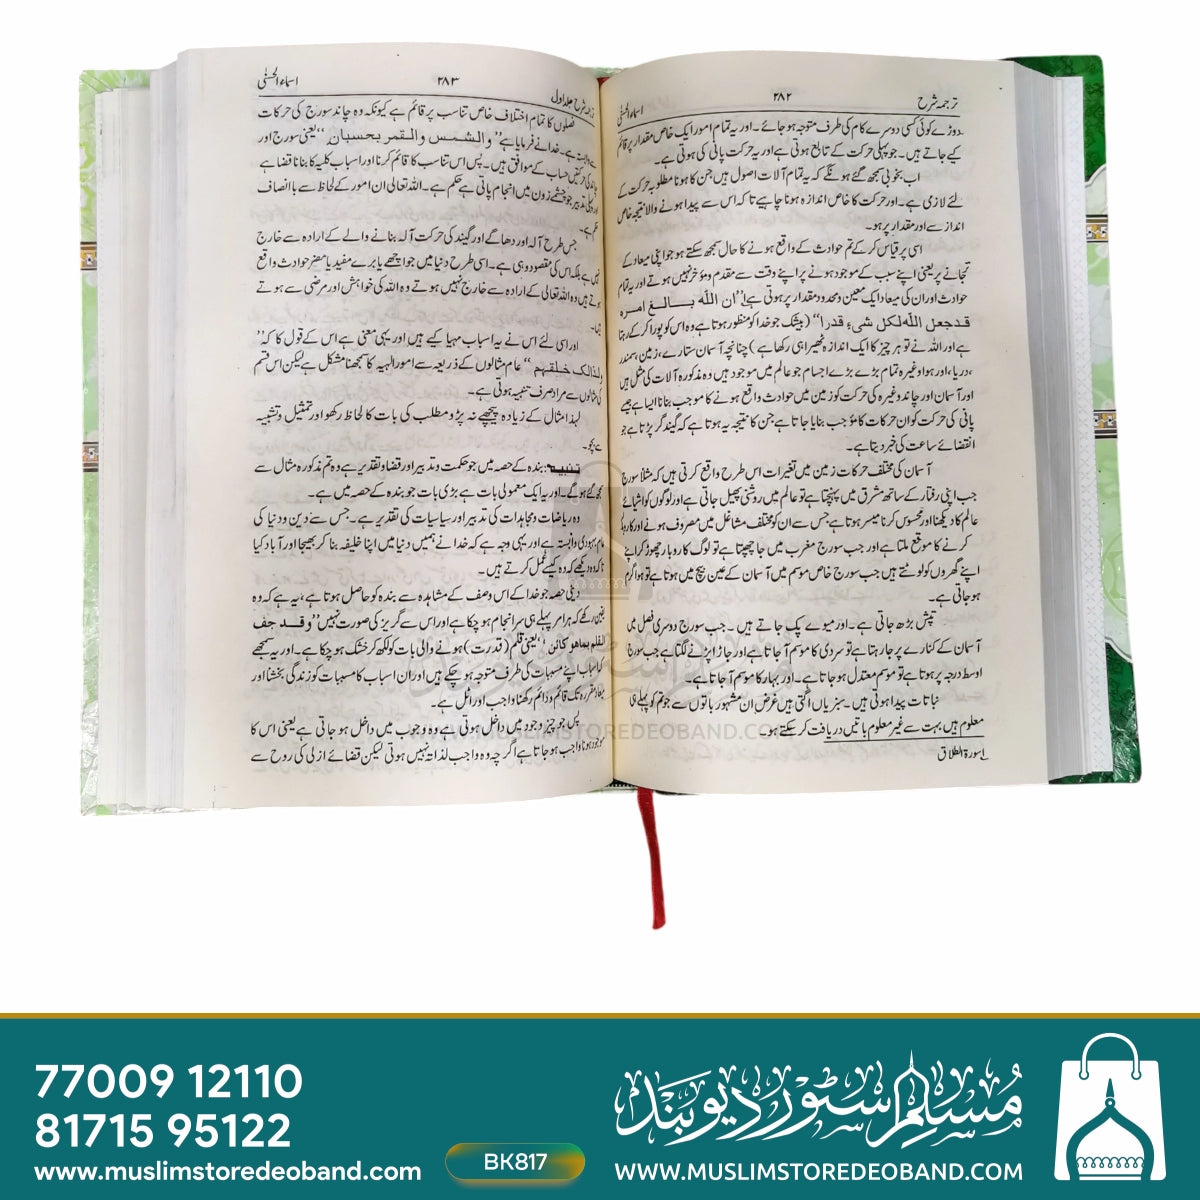 ترجمہ شرح ۲۸۲ اسماء الحسنٰی
دوڑے کوئی کسی دوسرے کام کی طرف متوجہ ہو جائے۔ اور یہ تمام امور ایک خاص مقدار پر قائم
کیے جاتے ہیں۔ جو پہلی حرکت کے تابع ہوتی ہے اور یہ حرکت پانی کی ہوتی ہے۔
اب بخوبی سمجھ گئے ہونگے کہ یہ تمام آلات اصول ہیں جن کا ہونا مطلوبہ حرکت کے
لئے لازمی ہے۔ اور حرکت کا خاص اندازہ ہونا چاہیے تاکہ اس سے پیدا ہونے والا نتیجہ خاص
انداز سے اور مقدار پر ہو۔
اسی پر قیاس کر کے تم حوادث کے واقع ہونے کا حال سمجھ سکتے ہو جو اپنی میعاد کے
تجانے پر یعنی اپنے سبب کے موجود ہونے پر اپنے وقت سے مقدم و مؤخر نہیں ہوتے اور یہ تمام
حوادث اور ان کی میعاد ایک معین و محدود مقدار پر ہوتی ہے "ان اللّٰہ بالغ امرہ
قد جعل اللّٰہ لکل شیء قدرا" (بیشک جو خدا کو منظور ہوتا ہے وہ اس کو پورا کر کے رہتا
ہے اور اللہ نے تو ہر چیز کا ایک اندازہ ٹھیرا ہی رکھا ہے) چنانچہ آسمان ستارے، زمین، سمندر
،دریا، اور ہوا وغیرہ تمام بڑے بڑے اجسام جو عالم میں موجود ہیں وہ مذکورہ آلات کی مثل ہیں
اور آسمان اور چاند وغیرہ کی حرکت کو زمین میں حوادث واقع ہونے کا موجب بنانا ایسا ہے جیسے
پانی کی حرکت کو ان حرکات کا مؤجب بنایا جاتا ہے جن کا نتیجہ یہ ہوتا ہے کہ گیند گر پڑتا ہے جو
انقضائے ساعت کی خبر دیتا ہے۔
آسمان کی مختلف حرکات زمین میں تغیرات اس طرح واقع کرتی ہیں کہ مثلاً سورج
جب اپنی رفتار کے ساتھ مشرق میں پہنچتا ہے تو عالم میں روشنی پھیل جاتی ہے اور لوگوں کو اشیائے
عالم کا دیکھنا اور محسوس کرنا میسر ہوتا ہے جس سے ان کو مختلف مشاغل میں مصروف ہونے اور کاروبار
کرنے کا موقع ملتا ہے اور جب سورج مغرب میں جا چھپتا ہے تو لوگ کاروبار چھوڑ کر اپنے
اپنے گھروں کو لوٹتے ہیں جب سورج خاص موسم میں آسمان کے عین بیچ میں ہوتا ہے تو ہوا گرم
ہو جاتی ہے۔
تپش بڑھ جاتی ہے۔ اور میوے پک جاتے ہیں۔ جب سورج دوسری فصل میں
آسمان کے کنارے پر جا رہتا ہے تو سردی کا موسم آجاتا ہے اور جاڑا پڑنے لگتا ہے جب سورج
اوسط درجہ پر ہوتا ہے تو موسم معتدل ہو جاتا ہے۔ اور بہار کا موسم آجاتا ہے۔
نباتات پیدا ہوتی ہیں۔ سبزیاں اُگتی ہیں غرض ان مشہور باتوں سے جو تم کو پہلے ہی
معلوم ہیں بہت سے غیر معلوم باتیں دریافت کر سکتے ہو۔
سورۃ الطلاق
شرح جلد اول ۲۸۳ اسماء الحسنٰی
فصلوں کا تمام اختلاف خاص تناسب پر قائم ہے کیونکہ وہ چاند سورج کی حرکات
ہے۔ خدا نے فرمایا ہے "والشمس والقمر بحسبان" یعنی سورج اور
حساب کے موافق ہیں۔ پس اس تناسب کا قائم کرنا اور اسباب کلیہ کا بنانا قضا ہے
میں انجام پاتی ہے حکم ہے۔ اللہ تعالی ان امور کے لحاظ سے با انصاف
جس طرح آلہ اور دھاگے اور گیند کی حرکت آلہ بنانے والے کے ارادہ سے خارج
نہیں ہے بلکہ اس کی مقصود وہی ہے۔ اسی طرح دنیا میں جو اچھے یا برے مفید یا مضر حوادث واقع
ہوتے ہیں وہ اللہ تعالی کے ارادہ سے خارج نہیں ہوتے وہ اللہ کی خواہش اور مرضی سے ہوتے
اور اسی لئے اس نے یہ اسباب مہیا کیے ہیں اور یہی معنی ہے اس کے قول کا کہ "
ولذالک خلقھم" عام مثالوں کے ذریعہ سے امور الہیہ کا سمجھنا مشکل ہے لیکن اس قسم
کی مثالوں سے مراد صرف تنبیہ ہوتی ہے۔
لہذا مثال کے زیادہ پیچھے نہ پڑو مطلب کی بات کا لحاظ رکھو اور تمثیل و تشبیہ
سے بچو۔
تنبیہ: بندہ کے حصہ میں جو حکمت و تدبیر اور قضا و تقدیر ہے وہ تم مذکورہ مثال سے
سمجھ گئے ہوگے۔ اور یہ ایک معمولی بات ہے بڑی بات جو بندہ کے حصہ میں ہے۔
وہ ریاضات و مجاہدات کی تدبیر اور سیاسیات کی تقدیر ہے۔ جس سے دین و دنیا کی
بہبودی وابستہ ہے اور یہی وجہ ہے کہ خدا نے ہمیں دنیا میں اپنا خلیفہ بنا کر بھیجا اور آباد کیا
تاکہ دیکھے کہ وہ کیسے عمل کرتے ہیں۔
دینی حصہ جو خدا کے اس وصف کے مشاہدہ سے بندہ کو حاصل ہوتا ہے، یہ ہے کہ وہ
یقین رکھے کہ ہر امر پہلے ہی سرانجام ہو چکا ہے اور اس سے گریز کی صورت نہیں "وقد جف
القلم بما ھو کائن" یعنی قلم (قدرت) ہونے والی بات کو لکھ کر خشک ہو چکا ہے۔ اور یہ سمجھے
کہ اسباب اپنے مسببات کی طرف متوجہ ہو چکے ہیں اور ان اسباب کا مسببات کو زندگی بخشنا اور
تک قائم و دائم رکھنا واجب اور اٹل ہے۔
پس جو چیز وجود میں داخل ہوتی ہے وہ وجوب میں داخل ہو جاتی ہے یعنی اس کا
موجود ہونا واجب ہو جاتا ہے اگرچہ وہ واجب لذاتہ نہیں ہوتی لیکن قضائے ازلی کی روح سے
WWW.MUSLIMSTOREDEOBAND.COM
77009 12110
81715 95122
www.muslimstoredeoband.com
BK817
مسلم سٹور دیوبند
WWW.MUSLIMSTOREDEOBAND.COM